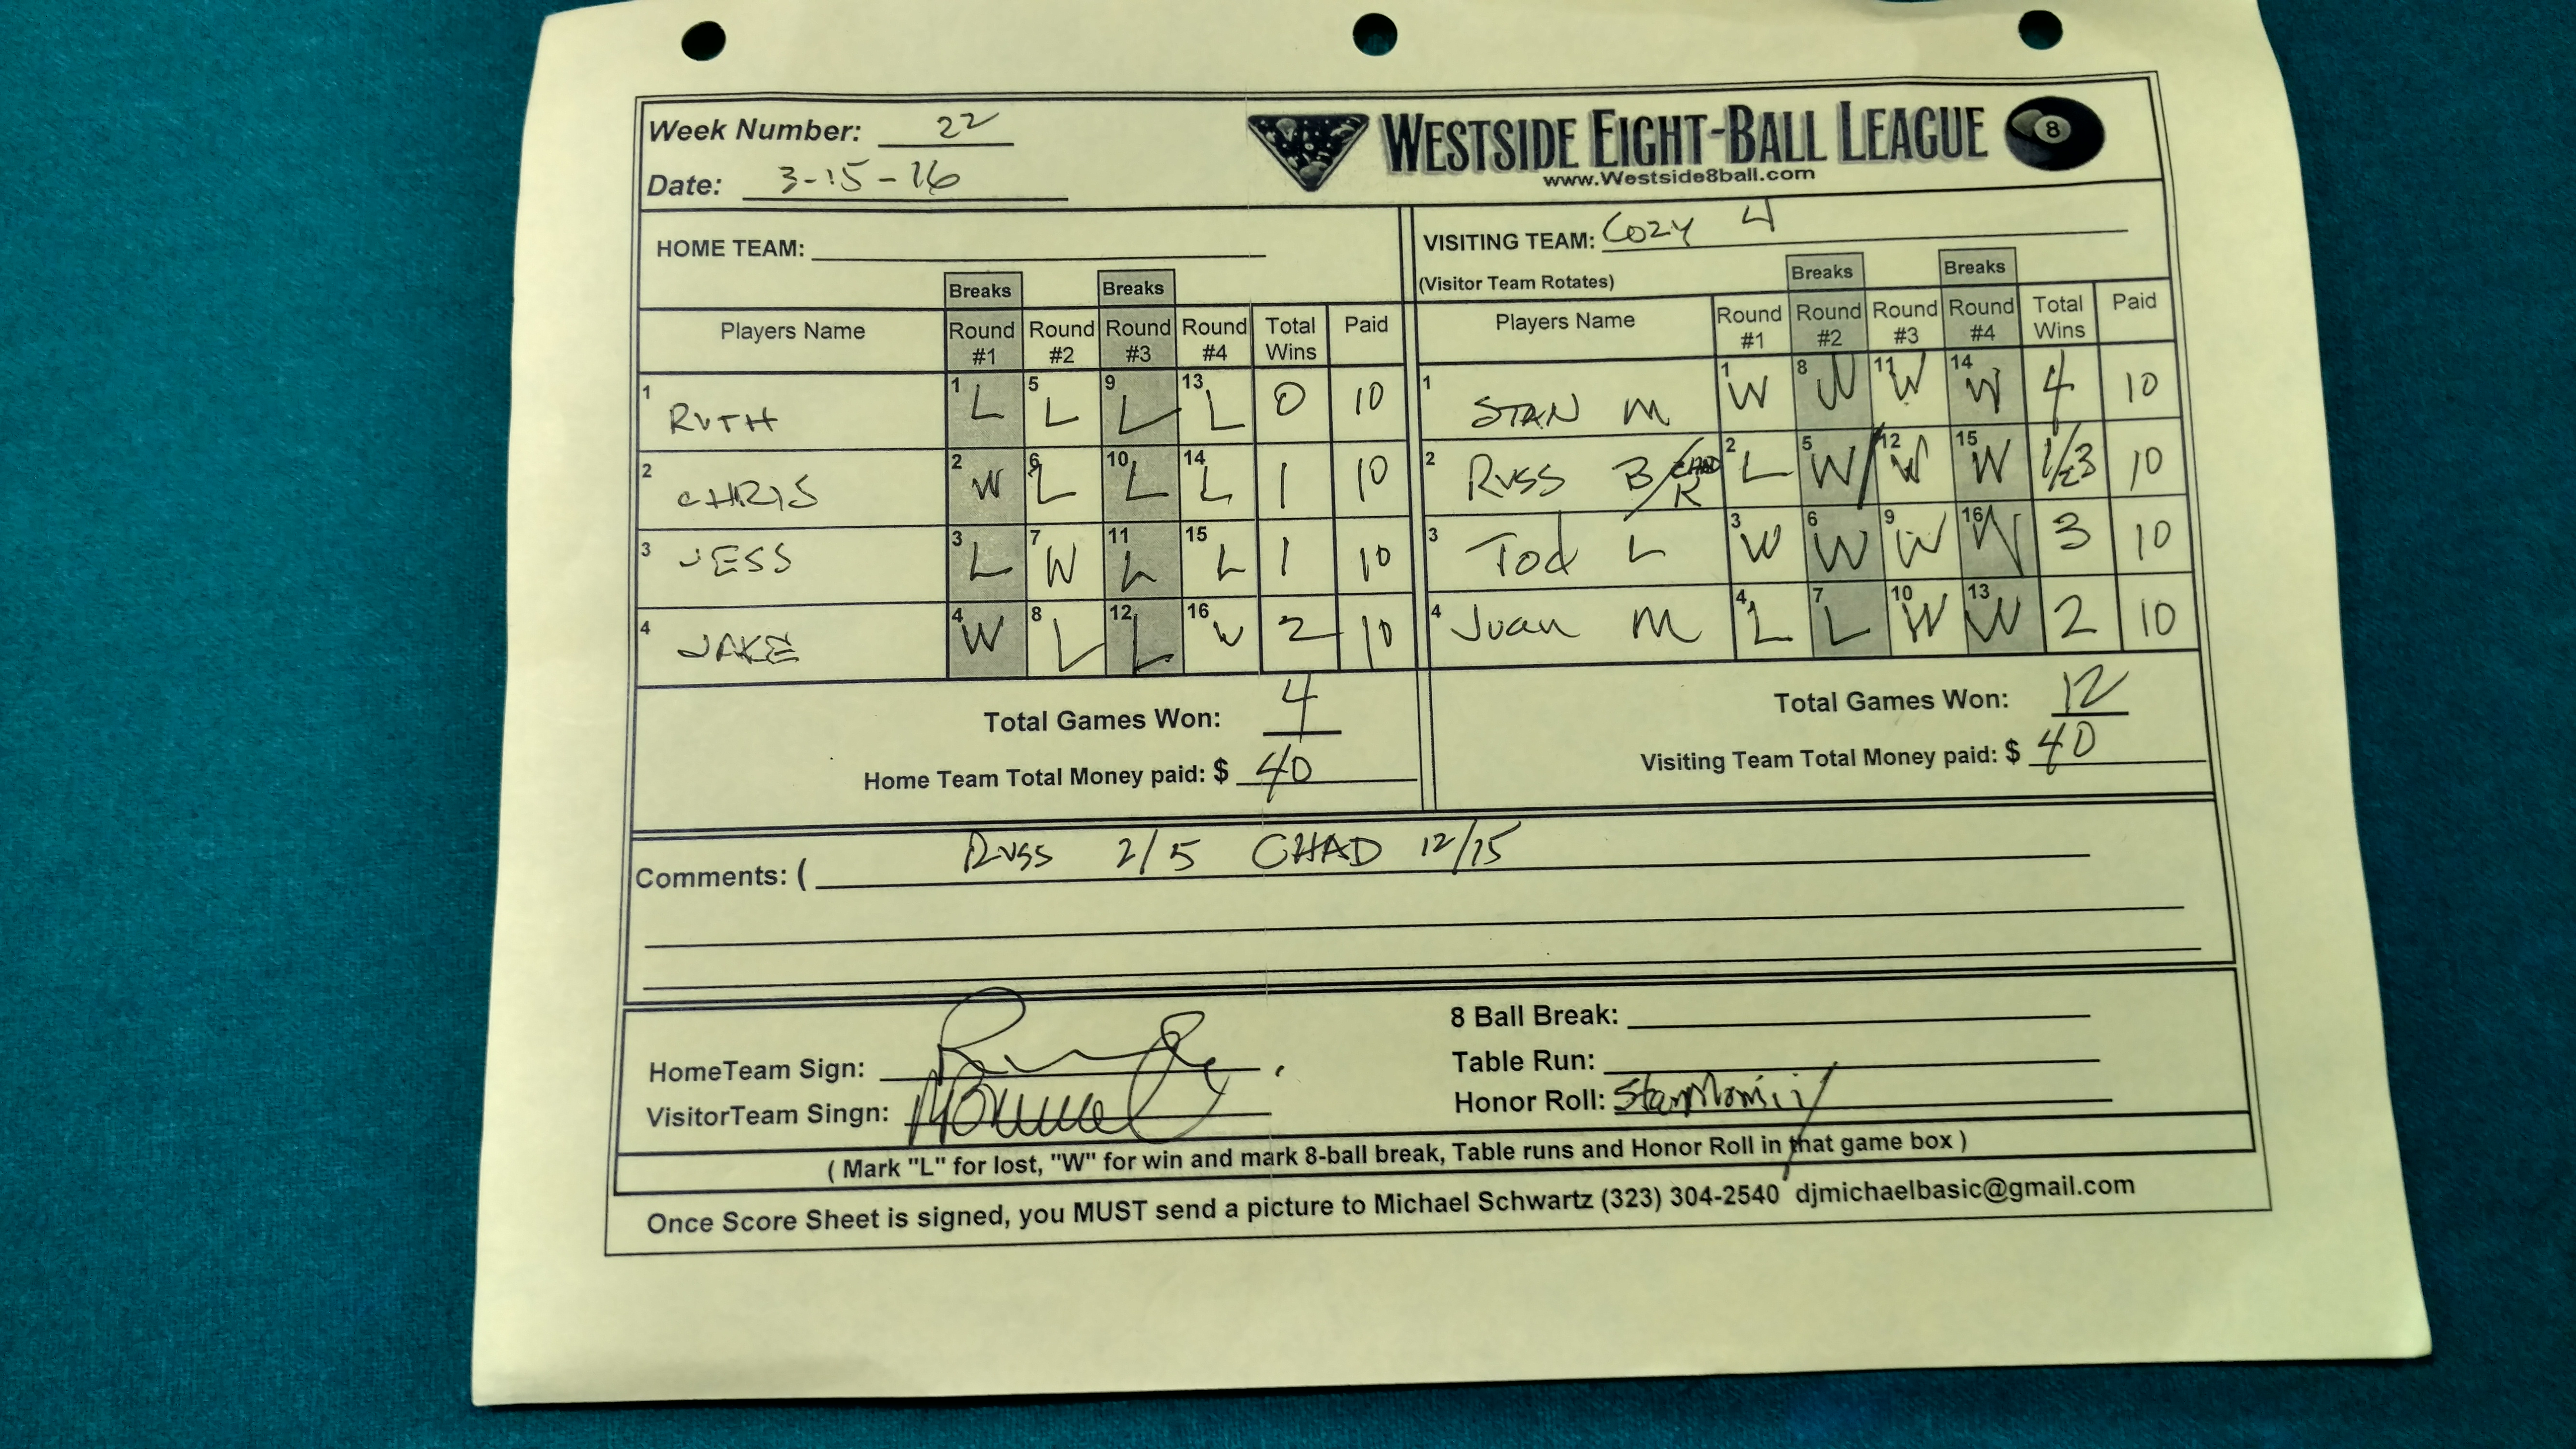 Week Number: 22
Date: 3-15-16
WESTSIDE EIGHT-BALL LEAGUE 8
www.Westside8ball.com
HOME TEAM:
Breaks Breaks
Players Name Round #1 Round #2 Round #3 Round #4 Total Wins Paid
1 RUTH 1 L 5 L 9 L 13 L 0 10
2 CHRIS 2 W 6 L 10 L 14 L 1 10
3 JESS 3 L 7 W 11 L 15 L 1 10
4 JAKE 4 W 8 L 12 L 16 W 2 10
Total Games Won: 4
Home Team Total Money paid: $ 40
VISITING TEAM: COZY 4
(Visitor Team Rotates)
Breaks Breaks
Players Name Round #1 Round #2 Round #3 Round #4 Total Wins Paid
1 STAN M 1 W 8 W 11 W 14 W 4 10
2 RUSS B/CHAD K 2 L 5 W/ 12 W 15 W 1/23 10
3 Tod L 3 W 6 W 9 W 16 W 3 10
4 Juan M 4 L 7 L 10 W 13 W 2 10
Total Games Won: 12
Visiting Team Total Money paid: $ 40
Comments: ( RUSS 2/5 CHAD 12/15
HomeTeam Sign:
VisitorTeam Singn:
8 Ball Break:
Table Run:
Honor Roll: Stan
( Mark "L" for lost, "W" for win and mark 8-ball break, Table runs and Honor Roll in that game box )
Once Score Sheet is signed, you MUST send a picture to Michael Schwartz (323) 304-2540 djmichaelbasic@gmail.com